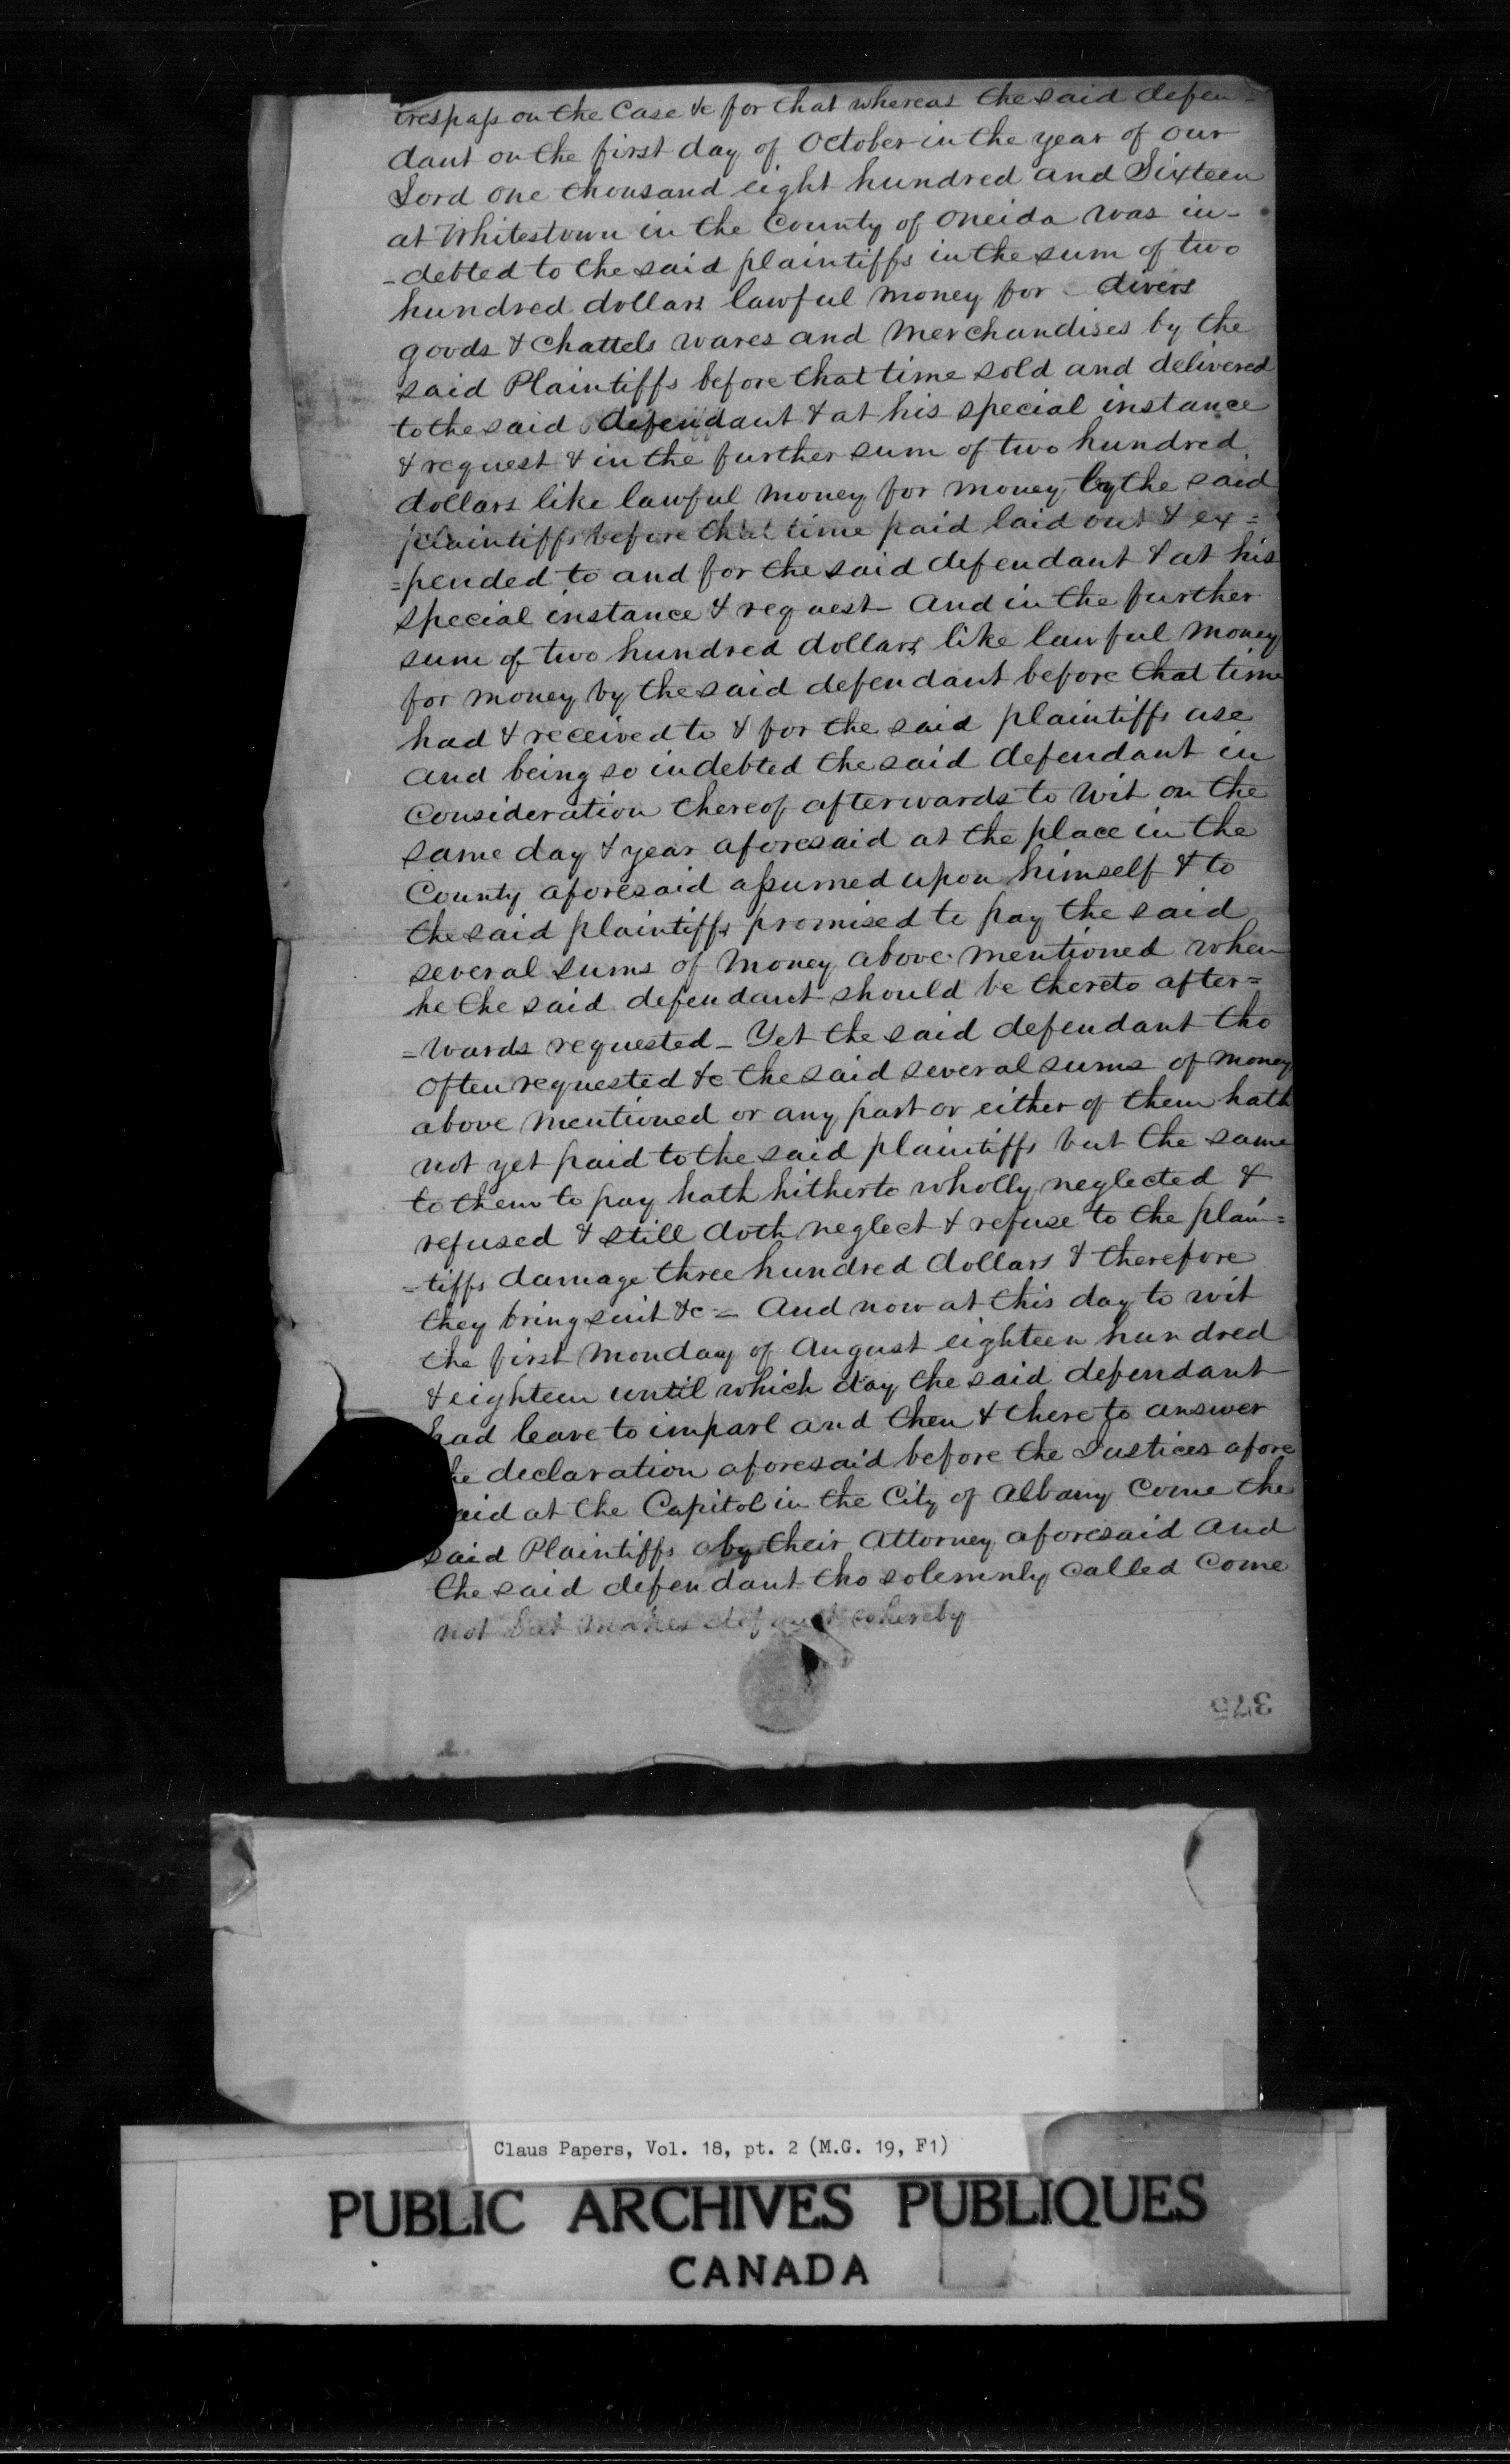 trespass on the Case &c for that whereas the said defen-
dant on the first day of October in the year of our
Lord one thousand eight hundred and Sixteen
at Whitestown in the County of Oneida was in-
-debted to the said plaintiffs in the sum of two
hundred dollars lawful money for divers
goods & Chattels wares and Merchandises by the
said Plaintiffs before that time sold and delivered
to the said defendant & at his special instance
& request & in the further sum of two hundred
dollars like lawful money for money by the said
plaintiffs before that time paid laid out & ex=
=pended to and for the said defendant & at his
special instance & request And in the further
sum of two hundred dollars like lawful money
for money by the said defendant before that time
had & received to & for the said plaintiffs use
And being so indebted the said defendant in
Consideration thereof afterwards to Wit on the
same day & year aforesaid at the place in the
County aforesaid assumed upon himself & to
the said plaintiffs promised to pay the said
several sums of Money above mentioned when
he the said defendant should be thereto after=
=wards requested - Yet the said defendant tho
often requested &c the said several sums of money
above mentioned or any part or either of them hath
not yet paid to the said plaintiffs but the same
to them to pay hath hitherto wholly neglected &
refused & still doth neglect & refuse to the plain=
=tiffs damage three hundred dollars & therefore
they bring suit &c - And now at this day to wit
the first Monday of August eighteen hundred
& eighteen until which day the said defendant
had leave to imparl and then & there to answer
he declaration aforesaid before the Justices afore
aid at the Capitol in the City of Albany Come the
said Plaintiffs by their Attorney aforesaid And
the said defendant tho solemnly called Come
not but makes default whereby
375
Claus Papers, Vol. 18, pt. 2 (M.G. 19, F1)
PUBLIC ARCHIVES PUBLIQUES
CANADA